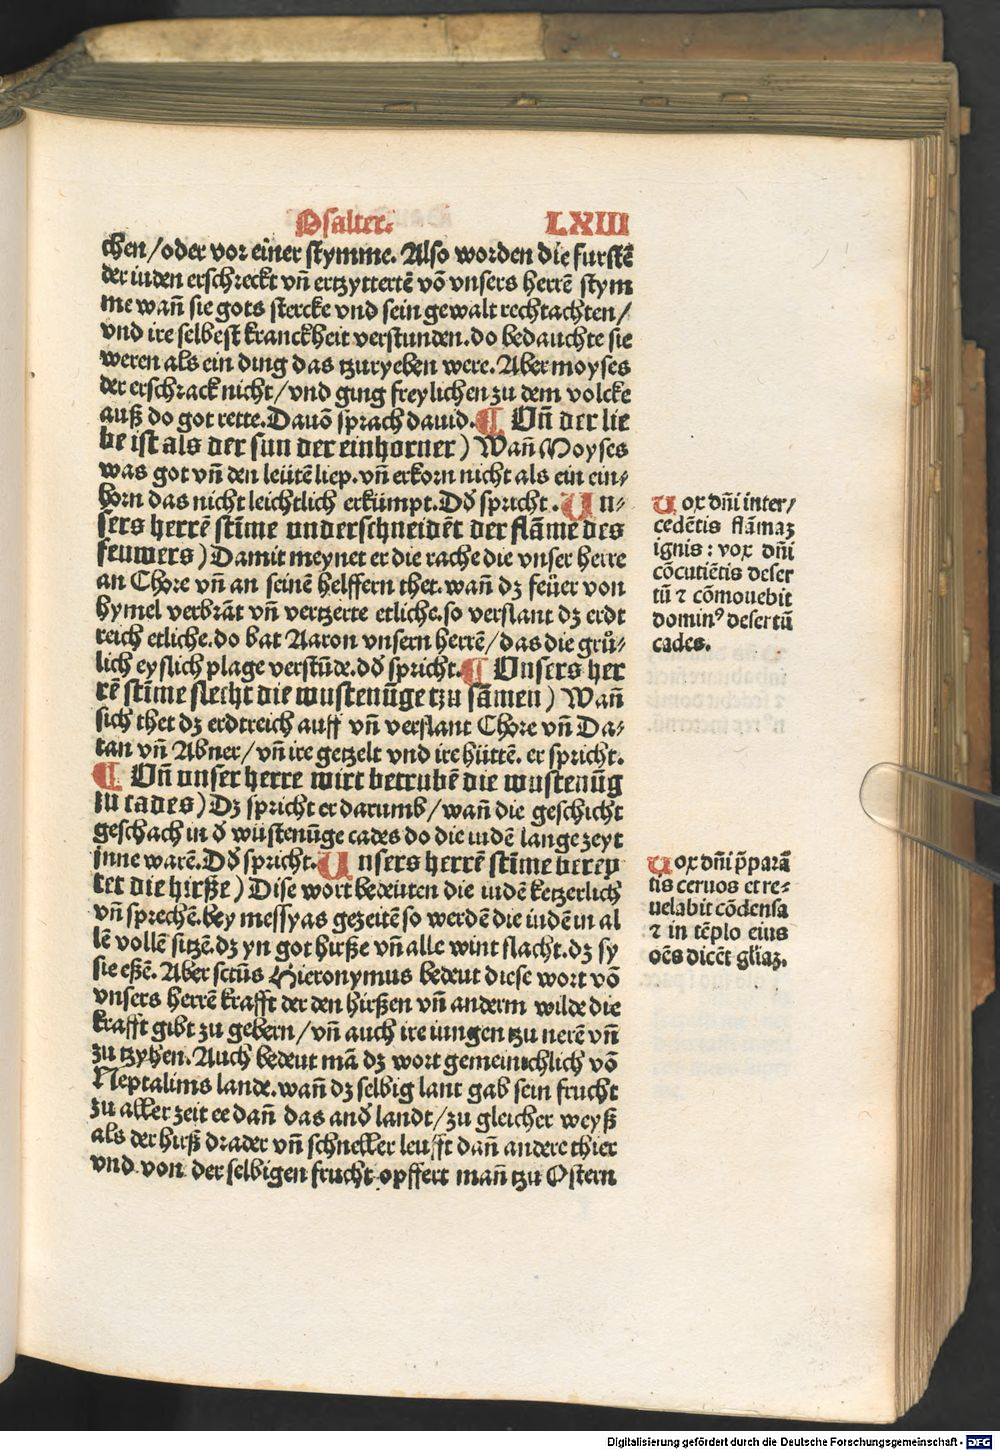 Psalter. LXIII
chen/oder vor einer stymme. Also worden die furstē
der iuden erschreckt vñ ertzyttertē vō vnsers herrē stym
me wañ sie gots stercke vnd sein gewalt recht achten/
vnd ire selbest kranckheit verstunden. do bedauchte sie
weren als ein ding das tzuryeben were. Aber moyses
der erschrack nicht/vnd ging freylichen zu dem volcke
auß do got rette. Dauō sprach dauid. ¶ Vñ der lie
be ist als der sun der einhorner) Wañ Moyses
was got vñ den leüten liep. vñ erkorn nicht als ein ein⸗
horn das nicht leichtlich erkümpt. Dō spricht. Un⸗
sers herrē stīme underschneidēt der flāme des
feuwers) Damit meynet er die rache die vnser herre
an Chore vñ an seinē helffern thet. wañ dz feüer von
hymel verbrāt vñ vertzerte etliche. so verslant dz erdt
reich etliche. do bat Aaron vnsern herrē/das die grů⸗
lich eyslich plage verstūde. dō spricht. ¶ Vnsers her
rē stīme slecht die wustenūge tzu sāmen) Wañ
sich thet dz erdtreich auff vñ verslant Chore vñ Da⸗
tan vñ Abner/vñ ire getzelt vnd ire hüttē. er spricht.
¶ Vñ unser herre wirt betrubē die wustenūg
zu cades) Dz spricht er darumb/wañ die geschicht
geschach in d̄ wüstenūge cades do die iudē lange zeyt
inne warē. Dō spricht. Unsers herrē stīme berey
tet die hirße) Dise wort bedeüten die iudē ketzerlich
vñ sprechē. bey messyas gezeitē so werdē die iudē in al
lē vollē sitzē. dz yn got hirße vñ alle wint slacht. dz sy
sie eßē. Aber sctūs Hieronymus bedeut diese wort vō
vnsers herrē krafft der den hirßen vñ anderm wilde die
krafft gibt zu gebern/vñ auch ire iungen tzu nerē vñ
zu tzyhen. Auch bedeut mā dz wort gemeinichlich vō
Neptalims lande. wañ dz selbig lant gab sein frucht
zu aller zeit ee dañ das and̄ landt/zu gleicher weyß
als der hirß drader vñ schneller leufft dañ andere thier
vnd von der selbigen frucht opffert mañ tzu Ostern
Uox dñi inter/
cedētis flāmaʒ
ignis: vox dñi
cōcutiētis deser
tū ⁊ cōmouebit
dominꝰ desertū
cades.
Uox dñi p̄parā
tis ceruos et re⸗
uelabit cōdensa
⁊ in tēplo eius
oēs dicēt gl̄iaʒ.
Digitalisierung gefördert durch die Deutsche Forschungsgemeinschaft - DFG